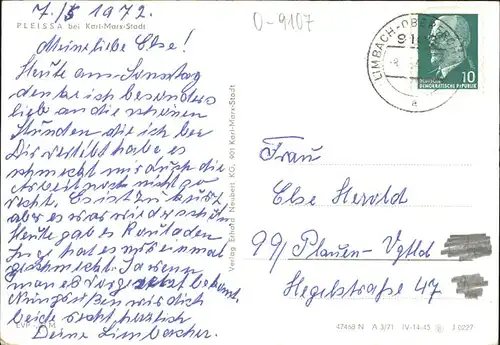 7./5 1972.
PLEISSA bei Karl-Marx-Stadt
0-9107
LIMBACH-OBER
10
DEMOKRATISCHE REPUBLIK
a
Meine liebe Else!
Heute am Sonntag
denke ich besonders
lieb an die schönen
Stunden die ich bei
Dir verlebt habe es
schmeckt mir auch die
Arbeit noch nicht so
recht. Es ist zu kurz
aber es war wieder schön
Heute gab es Rouladen
hat es mir einmal
geschmeckt. Ja wenn
man es vorgesetzt bekommt.
Nun grüßen wir dich
beide recht herzlich
Deine Limbacher.
Verlag Erhard Neubert KG, 901 Karl-Marx-Stadt
Frau
Else Herold
99/ Plauen-Vgtld
Hegelstraße 47
EVP M
47463 N A 3/71 IV-14-45 J 0227